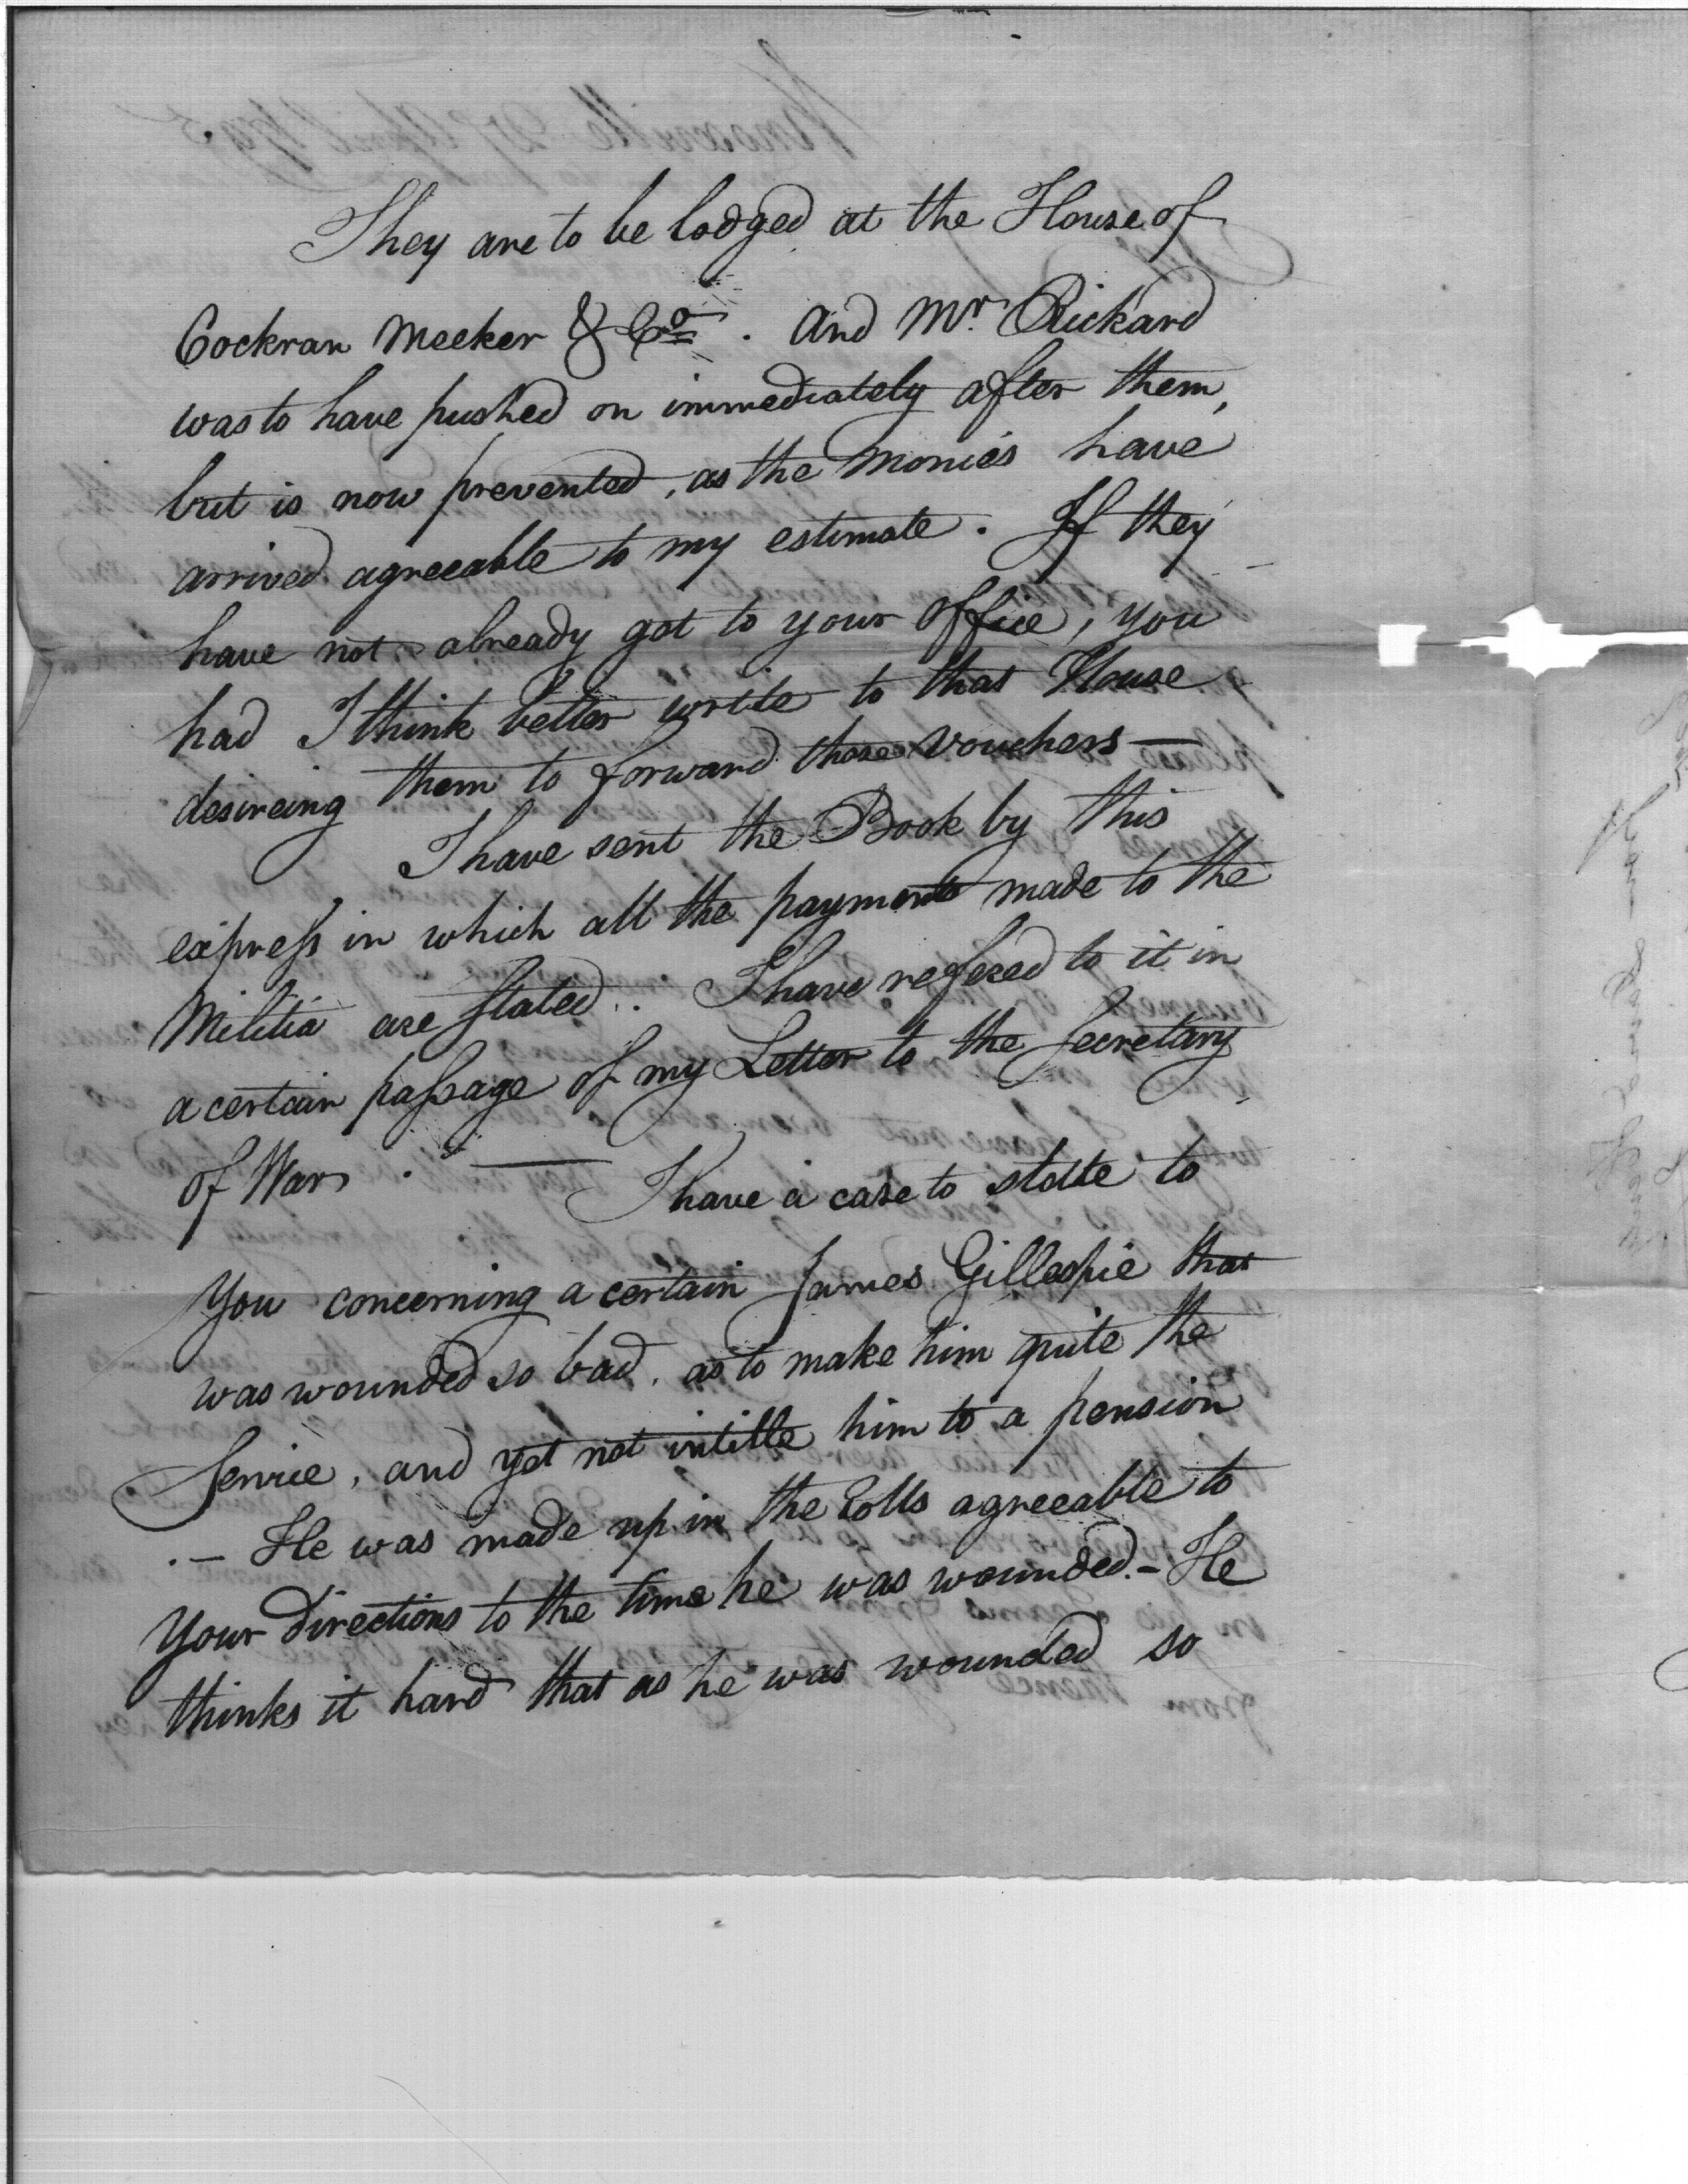 They are to be lodged at the House of
Cockran Meeker & Co. And Mr. Rickard
was to have pushed on immediately after them,
but is now prevented, as the monies have
arrived agreeable to my estimate. If they
have not already got to your office, you
had I think better write to that House
desireing them to forward those vouchers —
I have sent the Book by this
express in which all the payments made to the
Militia are stated. I have refered to it in
a certain passage of my Letter to the Secretary
of War. — I have a case to state to
you concerning a certain James Gillespie that
was wounded so bad, as to make him quite the
Service, and yet not intitle him to a pension
. — He was made up in the Rolls agreeable to
your directions to the time he was wounded. — He
thinks it hard that as he was wounded so